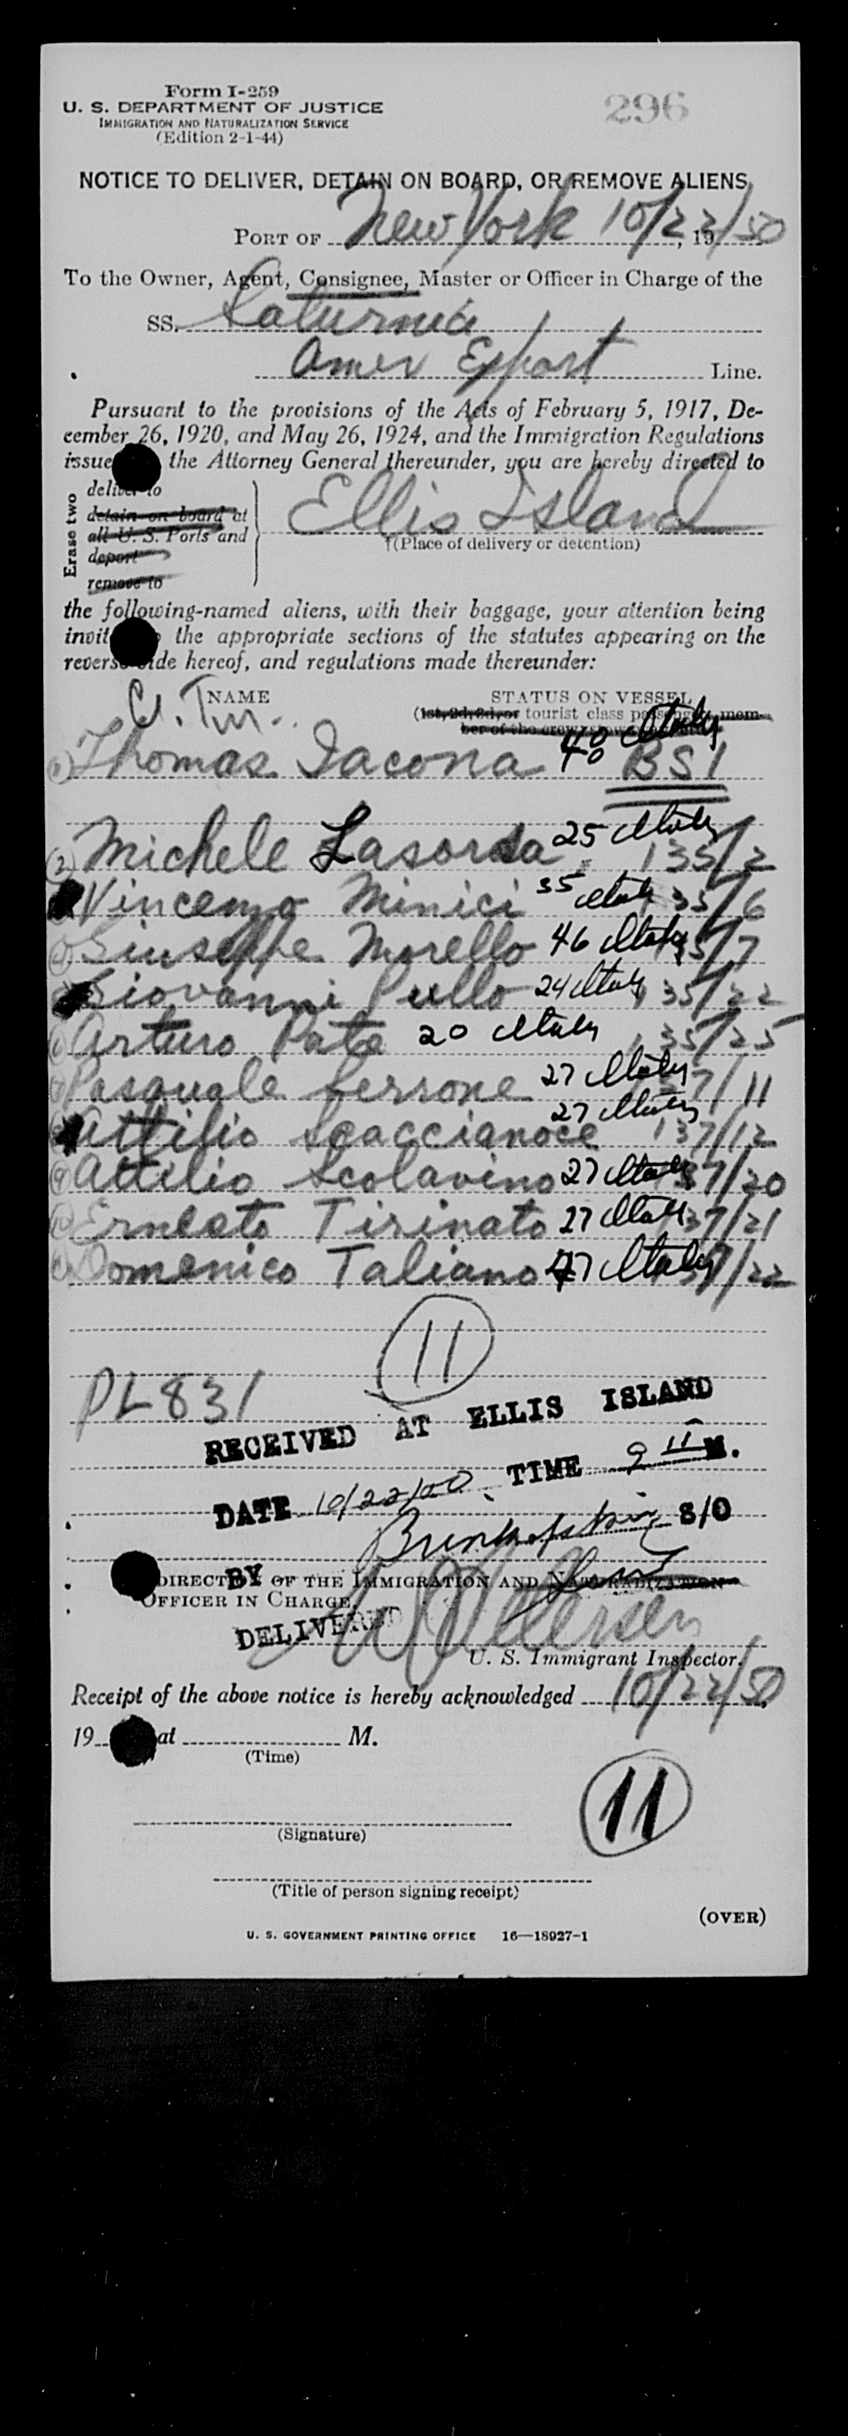 Form I-259
296
U. S. DEPARTMENT OF JUSTICE
IMMIGRATION AND NATURALIZATION SERVICE
(Edition 2-1-44)
NOTICE TO DELIVER, DETAIN ON BOARD, OR REMOVE ALIENS
PORT OF New York 10/22, 19/50
To the Owner, Agent, Consignee, Master or Officer in Charge of the
SS. Saturnia
Amer Export Line.
Pursuant to the provisions of the Acts of February 5, 1917, De-
cember 26, 1920, and May 26, 1924, and the Immigration Regulations
issue the Attorney General thereunder, you are hereby directed to
Erase two
deliver to
detain on board at
all U. S. Ports and
deport
remove to
Ellis Island
†(Place of delivery or detention)
the following-named aliens, with their baggage, your attention being
invit the appropriate sections of the statutes appearing on the
reverse side hereof, and regulations made thereunder:
NAME STATUS ON VESSEL
(1st, 2d, 3d, or tourist class passenger, mem-
ber of the crew,
1 Thomas Iacona 40 Italy BSI
2 Michele Lasorda 25 Italy 135/2
Vincenzo Minici 35 Italy 135/6
4 Giuseppe Morello 46 Italy 135/7
Giovanni Pullo 24 Italy 135/22
6 Arturo Pate 20 Italy 135/25
7 Pasquale Serrone 27 Italy 137/11
Attilio Scaccianoce 27 Italy 137/12
9 Attilio Scolavino 27 Italy 137/20
10 Ernesto Tirinato 27 Italy 137/21
11 Domenico Taliano 47 Italy 137/22
11
PL831
RECEIVED AT ELLIS ISLAND
DATE 10/22/50 TIME 9 11 M.
S/O
BY
DIRECT OF THE IMMIGRATION AND NATURALIZATION
OFFICER IN CHARGE
DELIVERED
U. S. Immigrant Inspector.
Receipt of the above notice is hereby acknowledged 10/22/50,
19 at M.
(Time)
11
(Signature)
(Title of person signing receipt)
(OVER)
U. S. GOVERNMENT PRINTING OFFICE 16—18927-1